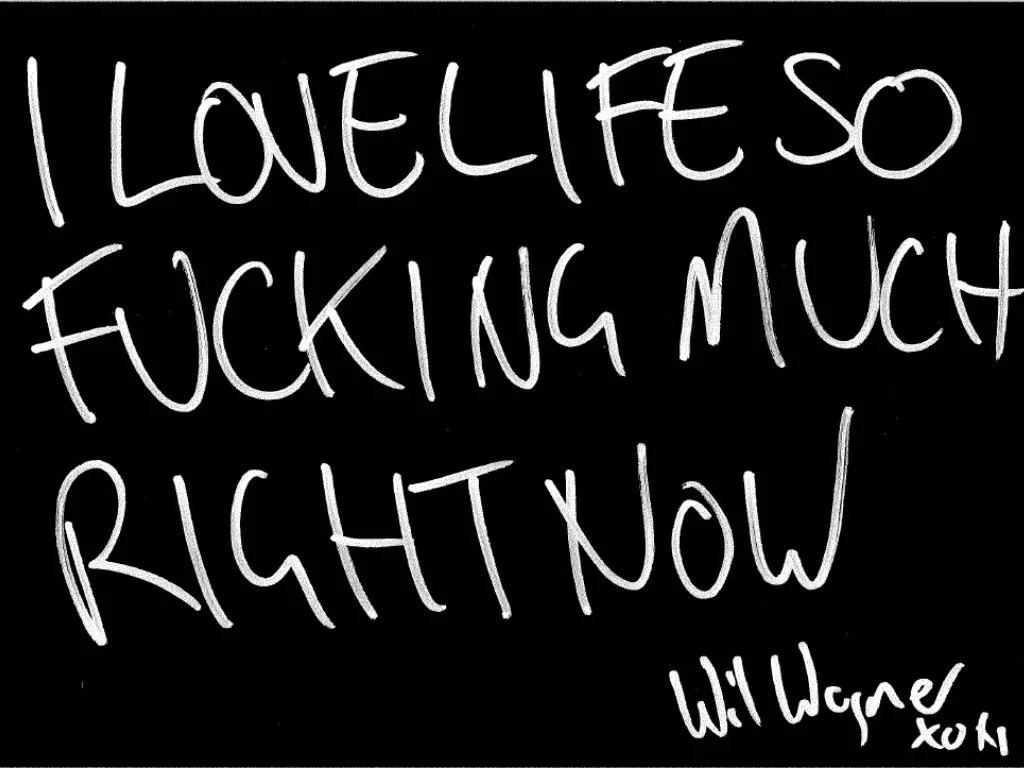 I LOVE LIFE SO
FUCKING MUCH
RIGHT NOW
Wil Wagner